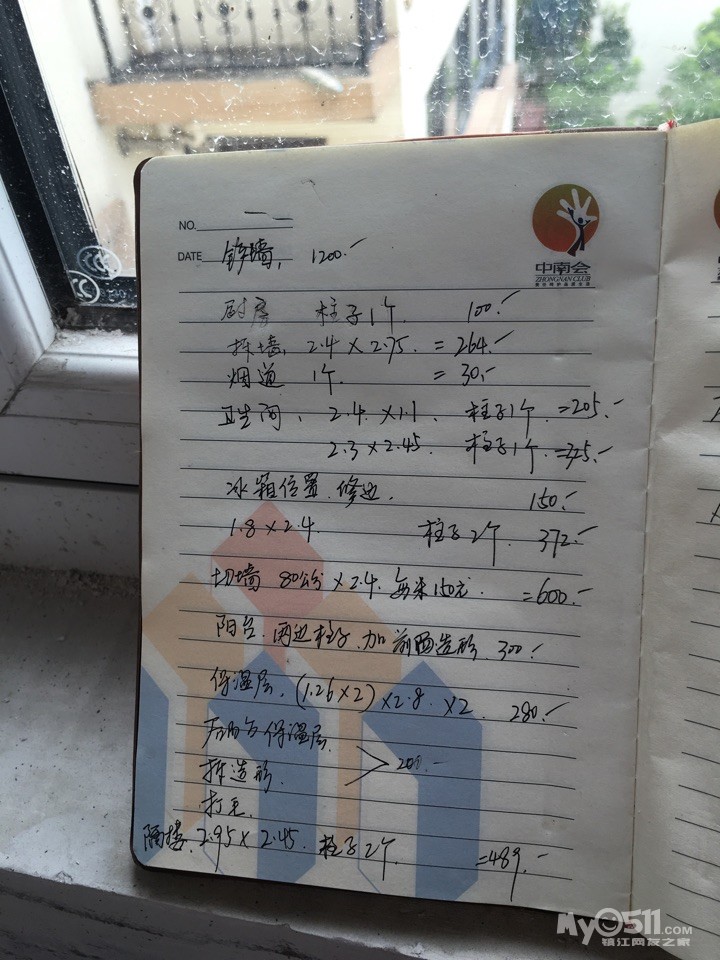 NO.
DATE 铲墙, 1200.-
中南会
ZHONGNAN CLUB
厨房 柱子1个. 100.-
拆墙, 2.4×2.75. =264.-
烟道 1个. =30.-
卫生间, 2.4.×1.1. 柱子1个.=205.-
2.3×2.45. 柱子1个.=325.-
冰箱位置.修边. 150.-
1.8×2.4 柱子2个. 372.-
切墙 80公分×2.4. 每米150元. =600.-
阳台.两边柱子.加前面造形.300.-
保温层.(1.26×2)×2.8.×2. 280.-
后阳台保温层.
拆造形. 200.-
打
隔楼.2.95×2.45. 柱子2个. =489.-
My0511.COM
镇江网友之家